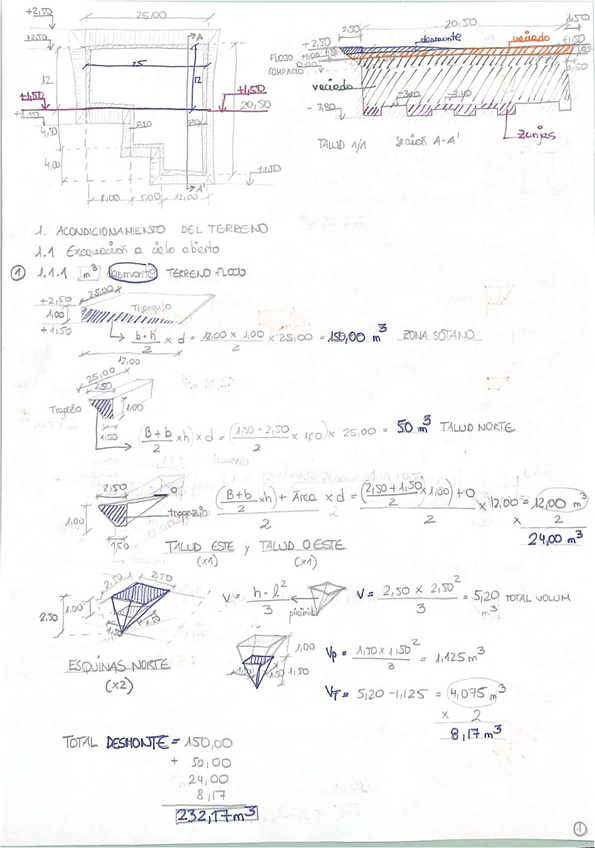 +2,50
25,00
+2,50
A
25
12
12
+1,50
+1,50
20,50
+1,50
4,50
4,00
-1,50
A'
8,00 5,00 12,00
2,50
20,50
1,50
+2,50
desmonte
vaciado
+1,50
FLOJO
COMPACTO
vaciado
-3,90
zanjas
TALUD 1/1
Sección A-A'
1. ACONDICIONAMIENTO DEL TERRENO
1.1 Excavación a cielo abierto
① 1.1.1 m³ desmonte TERRENO FLOJO
25,00
+2,50
1,00
+1,50
Triangulo
12,00
b·h/2 x d = 12,00 x 1,00/2 x 25,00 = 150,00 m³ ZONA SÓTANO
25,00
2,50
Trapecio
1,00
1,50
(B+b/2 xh) x d = (1,50 + 2,50/2 x 1,00) x 25,00 = 50 m³ TALUD NORTE
2,50
0
1,00
trapecio
1,50
(B+b/2 xh) + Área/2 x d = (2,50 + 1,50/2 x 1,00) + 0/2 x 12,00 = 12,00 m³
x 2
24,00 m³
TALUD ESTE y TALUD OESTE
(x1) (x1)
2,50 2,50
1,00
2,50
1,50 1,50
V = h·l²/3
pirámide
V = 2,50 x 2,50²/3 = 5,20 TOTAL VOLUM
m³
ESQUINAS NORTE
(x2)
1,00
1,50 1,50
Vp = 1,50 x 1,50²/3 = 1,125 m³
VT = 5,20 - 1,125 = 4,075 m³
x 2
8,17 m³
TOTAL DESMONTE = 150,00
+ 50,00
24,00
8,17
232,17 m³
①